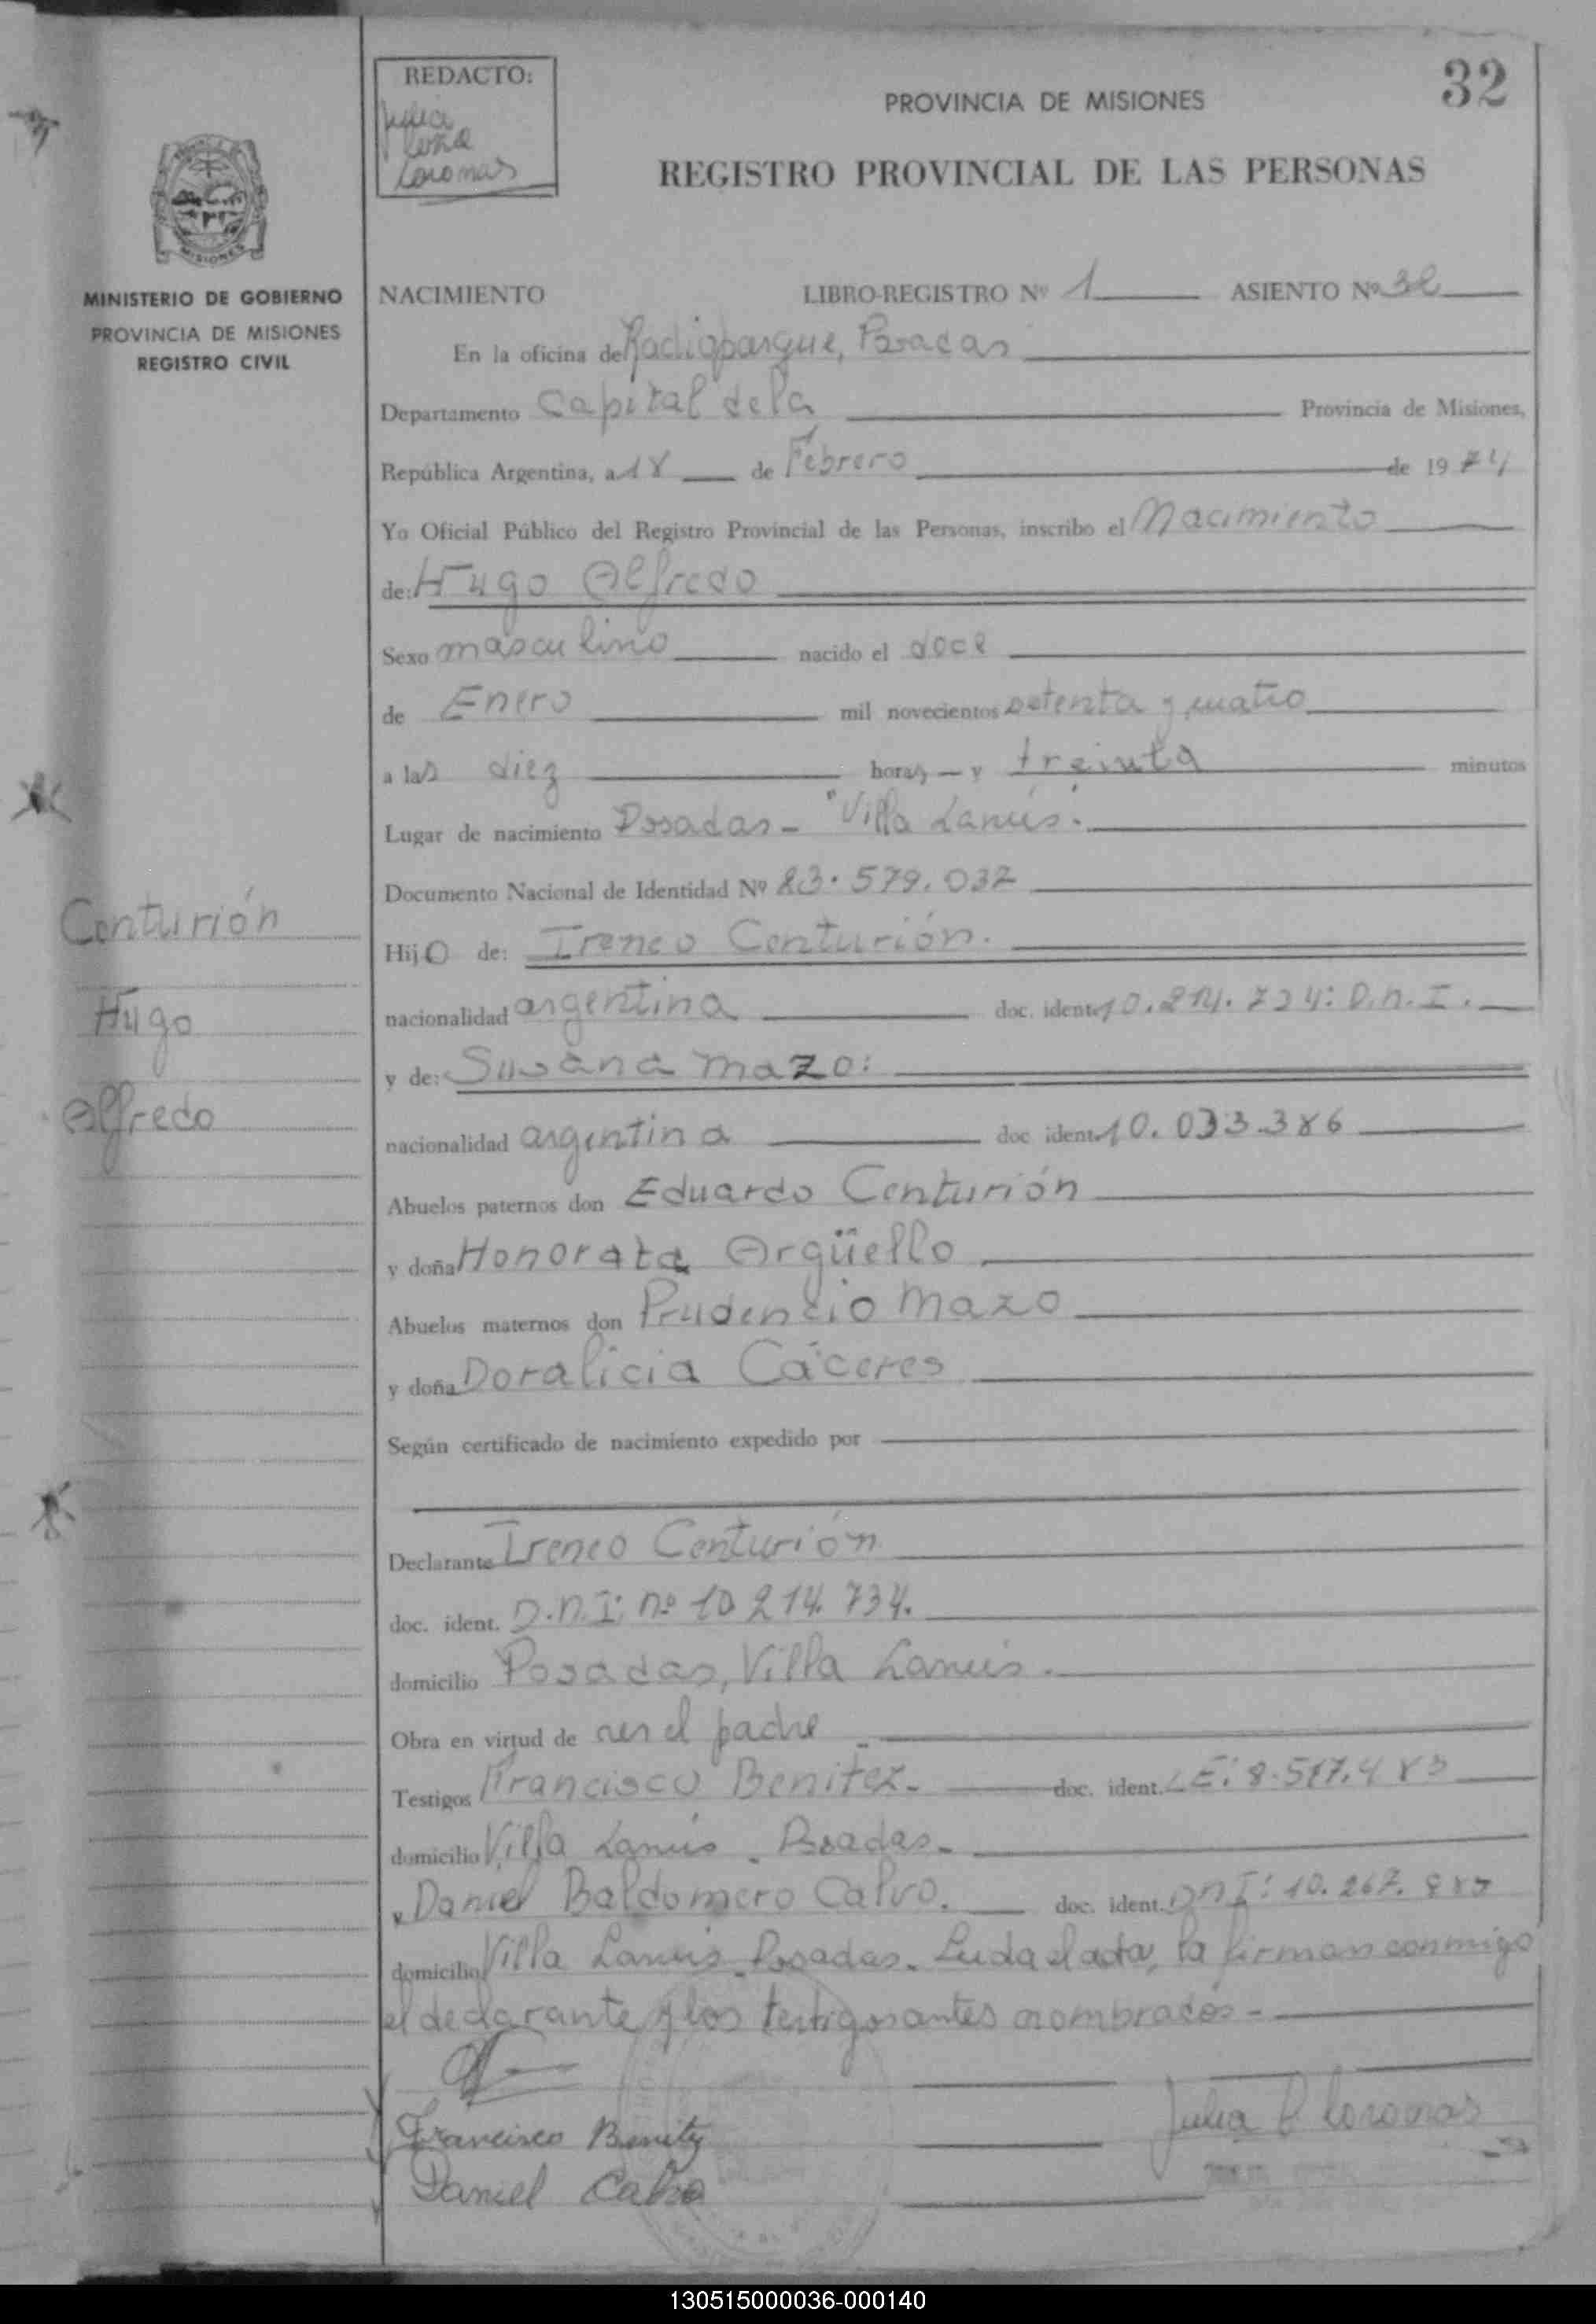 32
REDACTO:
Julia
Coromas
PROVINCIA DE MISIONES
REGISTRO PROVINCIAL DE LAS PERSONAS
MISIONES
MINISTERIO DE GOBIERNO
PROVINCIA DE MISIONES
REGISTRO CIVIL
NACIMIENTO LIBRO-REGISTRO Nº 1 ASIENTO Nº 32
En la oficina de Radioparque, Posadas
Departamento Capital de la Provincia de Misiones,
República Argentina, a 18 de Febrero de 1974
Yo Oficial Público del Registro Provincial de las Personas, inscribo el Nacimiento
de: Hugo Alfredo
Sexo masculino nacido el doce
de Enero mil novecientos setenta y cuatro
a las diez horas y treinta minutos
Lugar de nacimiento Posadas - "Villa Lanús".
Documento Nacional de Identidad Nº 23.579.037
Centurión
Hugo
Alfredo
Hijo de: Ireneo Centurión.
nacionalidad argentina doc. ident. 10.214.734: D.N.I.
y de: Susana Mazo:
nacionalidad argentina doc ident. 10.033.386
Abuelos paternos don Eduardo Centurión
y doña Honorata Argüello
Abuelos maternos don Prudencio Mazo
y doña Doralicia Cáceres
Según certificado de nacimiento expedido por
Declarante Ireneo Centurión
doc. ident. D.N.I: nº 10 214.734.
domicilio Posadas, Villa Lanús.
Obra en virtud de ser el padre
Testigos Francisco Benitez. doc. ident. L.E: 8.517.483
domicilio Villa Lanús - Posadas -
y Daniel Baldomero Calvo. doc. ident. DNI: 10.267.
domicilio Villa Lanús - Posadas. Leida el acta, la firman conmigo
el declarante y los testigos antes nombrados -
Francisco Benitez
Julia C Coromas
Daniel Calvo
130515000036-000140